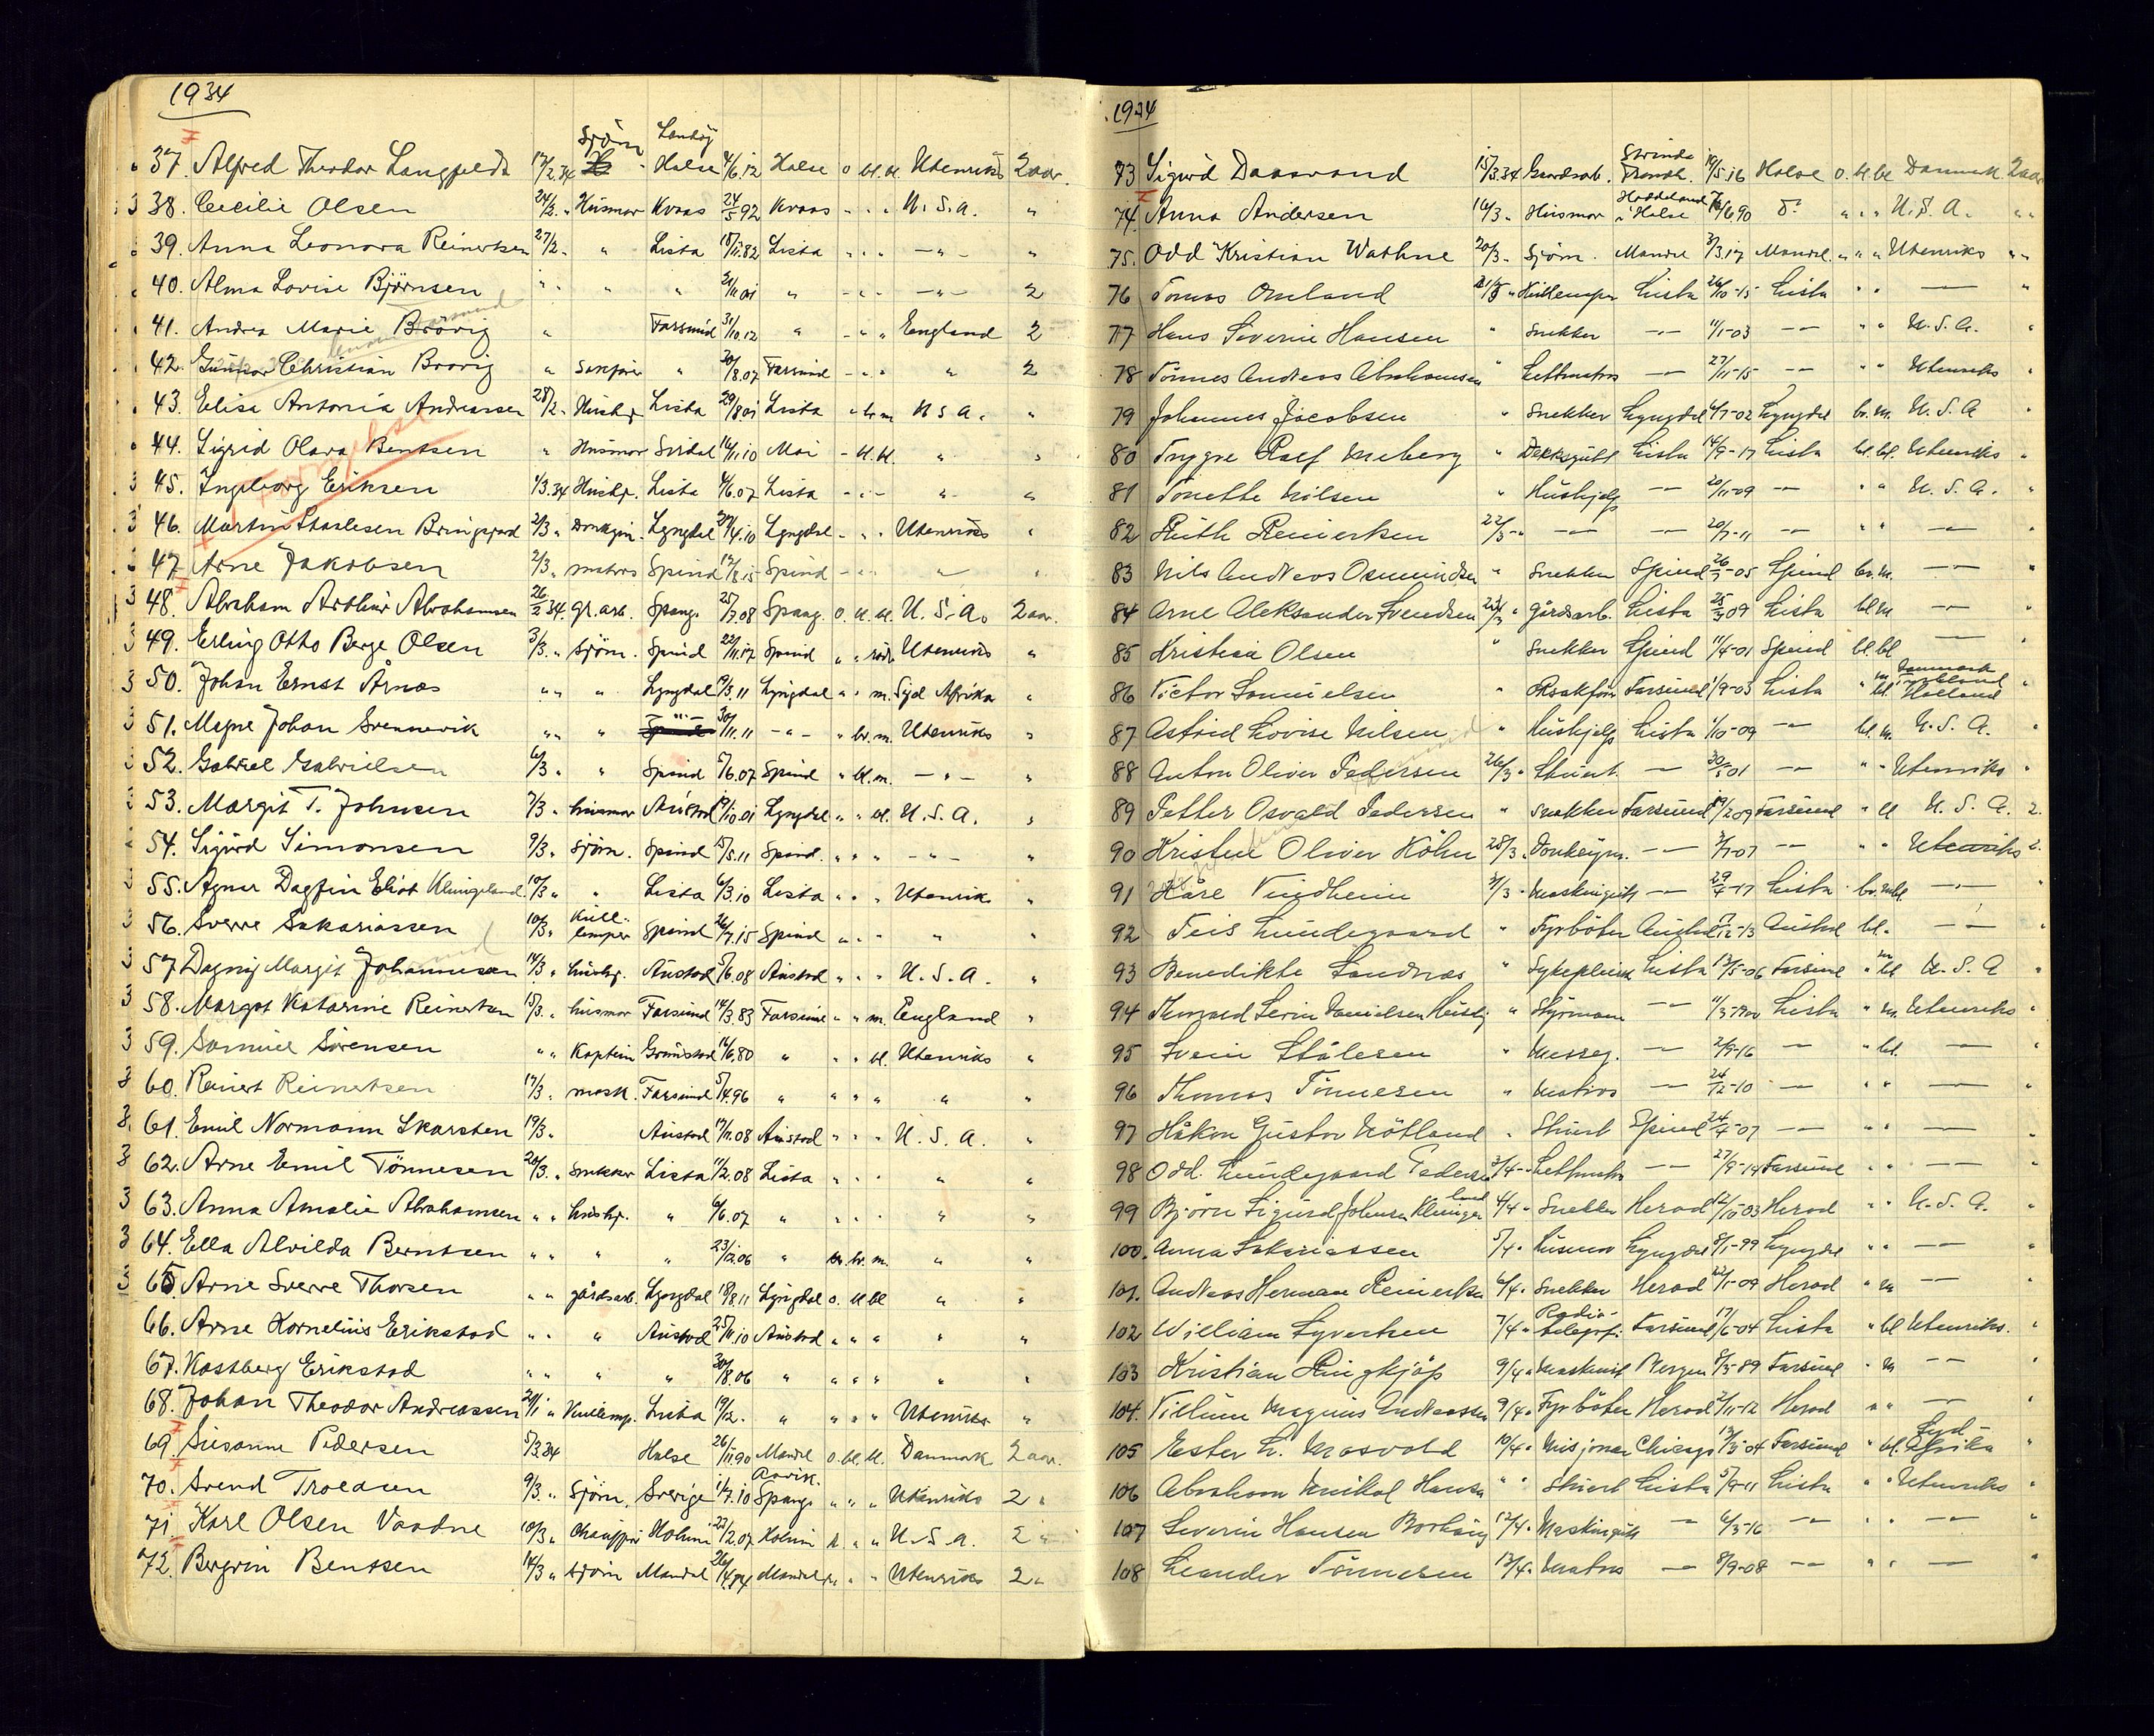 1934
37. Alfred Theodor Langfeldt 17/2.34 Sjöm. Halse 4/6.12 Halse o bl. bl. Utenriks 2 aar.
38. Cecilie Olsen 24/2. " Husmor Kvaas 24/5 92 Kvaas - . . U.S.A. "
39. Anna Leonora Reinertsen 27/2 - " Lista 18/11.82 Lista " " " —"— "
40. Alma Lovise Björnsen " " " " 01 " - " " —"— 2
41. Andrea Marie Brövig " Farsund 31/10.12 " - " " England 2
42. Gunnar Christian Brovig " " 20/8.07 Farsund - " " " 2
43. Elise Antonie Andreassen 28/2 - Hushj. Lista 29/8 01 Lista " br m U S A. "
44. Sigrid Olava Bentsen " Husmor Sirdal 16/11.10 Moi - bl. bl. " "
45. Ingeborg Eriksen 1/3.34 Hushj. Lista 4/6.07 Lista - . - " "
46. Martin Staalesen Bringsjord 2/3 " Donkym. Lyngdal 4.10 Lyngdal - . " Utenriks "
47. Arne Jakobsen 2/3 " matros Spind 12/8.15 Spind - . . " "
48. Abraham Arthur Abrahamsen 26/2 34. gr. arb. Spang. 25/7.08 Spang. o. bl. bl. U.S.A. 2 aar.
49. Erling Otto Berge Olsen 3/3. " sjöm. Spind 22/11.17 Spind " " Utenriks "
50. Johan Ernst Årnes " " " Lyngdal 9/3.11 Lyngdal " " m. Syd Afrika "
51. Magne Johan Svennevik " " " —"— 30/11.11 —"— " br. m. Utenriks "
52. Gabriel Gabrielsen 6/3 " " Spind 5/6.07 Spind " bl. m. —"— "
53. Margit T. Johnsen 7/3 " husmor Austad 19/10.01 Lyngdal " " bl. U.S.A. "
54. Sigurd Simonsen 9/3 " sjöm. Spind 15/5.11 Spind. " " " —"— "
55. Agnar Dagfin Eliot Klungeland 10/3 " " Lista 6/3.10 Lista " " " Utenrik "
56. Sverre Sakariassen 10/3. " Kull-lemper Spind 26/7.15 Spind " " - " "
57. Dagny Margit Johannessen 14/3 " hushj. Austad 5/6.08 Austad " " " U.S.A. "
58. Margot Katarine Reinertsen 15/3. " husmor Farsund 14/3.83 Farsund " " m. England "
59. Samuel Sörensen " " Kaptein Grimstad 14/6.80 " " " bl. Utenriks "
60. Reinert Reinertsen 17/3 " mask. Farsund 5/4.96 " " " " " "
61. Emil Normann Skarstein 19/3. " Austad 17/11.08 Austad " " " U.S.A. "
62. Arne Emil Tönnesen 20/3. " snekker Lista 11/2.08 Lista " " " " "
63. Anna Amalie Abrahamsen " " hushj. " 6/6.07 " " " " " "
64. Ella Alvilda Berntsen " " " " 23/12.06 " br. m. " "
65 Arne Sverre Thorsen " " gårdsarb. Lyngdal 18/8.11 Lyngdal o. bl bl " "
66. Arne Kornelius Erikstad " " " Austad 25/11.10 Austad " " " " "
67. Kastberg Erikstad " " " " 30/8.06 " " " " " "
68. Johan Theodor Andreassen 20/1 " Kullemp. Lista 19/12. " " " " Utenriks "
69. Susanne Pedersen 5/3 34 Halse 26/11.90 Mandal o. bl. bl. Danmark 2 aar.
70. Svend Troelsen 9/3. " Sjöm. Sverige 1/7.10 Spang. " " " Utenriks 2 "
71. Karl Olsen Vaadne 10/3 " Chauffør Holum 23/12.07 Holum " " U.S.A. 2 "
72. Bergvin Bentsen 14/3 " sjöm Mandal 26/4. Mandal " " Utenriks 2 "
1934
73 Sigurd Daasvand 15/3.34 Gaardsarb. Strinda Trondh. 19/5.16 Halse o. bl bl Danmark 2 aar
74. Anna Andersen 16/3 " Husmor Hoddeland i Halse /6.90 Do " " " U.S.A. " "
75. Odd Kristian Wathne 20/3 " Sjöm. Mandal 3/3.17 Mandal " " " Utenriks " "
76 Tomas Omland 21/3 " Kullemper Lista 26/10-15 Lista " " — "
77 Hans Severin Hansen " Snekker —"— 11/1-03 —"— " " U.S.A. "
78 Tönnes Andreas Abrahamsen " Lettmatros —"— 27/11-15 —"— " " Utenriks "
79 Johannes Jacobsen " Snekker Lyngdal 6/7-02 Lyngdal br. m. U.S.A "
80 Trygve Ralf Meberg " Dekksgutt Lista 14/9-17 Lista bl. bl. Utenriks "
81 Tonette Nilsen " Hushjelp —"— 20/11-09 —"— " " U.S.A. "
82 Ruth Reinertsen 22/3-" —"— —"— 20/7-11 —"— " " —"— "
83 Nils Andreas Osmundsen " Snekker Spind 26/7-05 Spind br. m. —"— "
84 Arne Aleksander Svendsen 23/3 " gårdsarb. Lista 25/3 09 Lista bl. m —"— "
85 Kristian Olsen " Snekker Spind 11/4-01 Spind bl. bl —"— "
86 Victor Samuelsen " Farsund 1/9-03 Lista " m bl. Danmark Tyskland Holland "
87 Astrid Lovise Nilsen " Hushjelp Lista 1/10-09 —"— bl. m. U.S.A. "
88 Anton Oliver Pedersen 26/3 " Stuert —"— 30/5 01 —"— " " Utenriks "
89 Petter Osvald Pedersen " Snekker Farsund 19/2 09 Farsund " bl U.S.A. 2.
90 Kristen Oliver Köhn 28/3 " Donkeym. —"— 3/7-07 —"— " " Utenriks 2.
91 Kåre Vindheim 3/3 " Maskingutt —"— 29/4-17 Lista br. mbl —"— "
92 Teis Lundegaard " Fyrböter Austad /12-13 Austad bl. " —"— "
93 Benedikte Sandnæs " Sykepleierske Lista 13/5-06 Farsund " m bl U.S.A "
94 Thorvald Severin Danielsen " Styrmann —"— 11/3-1900 Lista " m. Utenriks "
95 Svein Stålesen " Messeg. —"— 2/9-16 —"— " bl. —"— "
96 Thomas Tönnesen " Matros —"— 24/12-10 —"— " " —"— "
97 Håkon Gustav Nötland " Stuert Spind 24/4-07 —"— " " —"— "
98 Odd. Lundegaard Pedersen 3/4-" Lettmatr. —"— 27/9-14 Farsund " " —"— "
99 Björn Sigurd Johnsen Klungeland 4/4 " Snekker Herad 12/10-03 Herad " " U.S.A. "
100. Anna Sakariassen 5/4 " Husmor Lyngdal 8/1-99 Lyngdal " " —"— "
101. Andreas Herman Reinertsen 6/4. Snekker Herad 22/1-09 Herad " m —"—
102 William Syvertsen 7/4 " Radio-telegrf. Farsund 17/6-04 Lista " bl Utenriks. "
103 Kristian Ringkjöp 9/4 " Maskinist Bergen 8/5-89 Farsund " m —"—
104. Villum Magnus Andreassen 9/4 " Fyrböter Herad 2/11-12 Herad " " —"— "
105 Ester L. Mosvold 10/4 " Misjonær Chicago 13/3-04 Farsund " bl. Syd-Afrika "
106 Abraham Mikal Hansen " " Stuert Lista 5/9-11 Lista " " Utenriks "
107 Severin Hansen Borhaug 12/4 " Maskingutt —"— 6/3-16 —"— " " —"— "
108 Leander Tönnesen 13/4 " Matros —"— 8/9-08 —"— " " —"— "